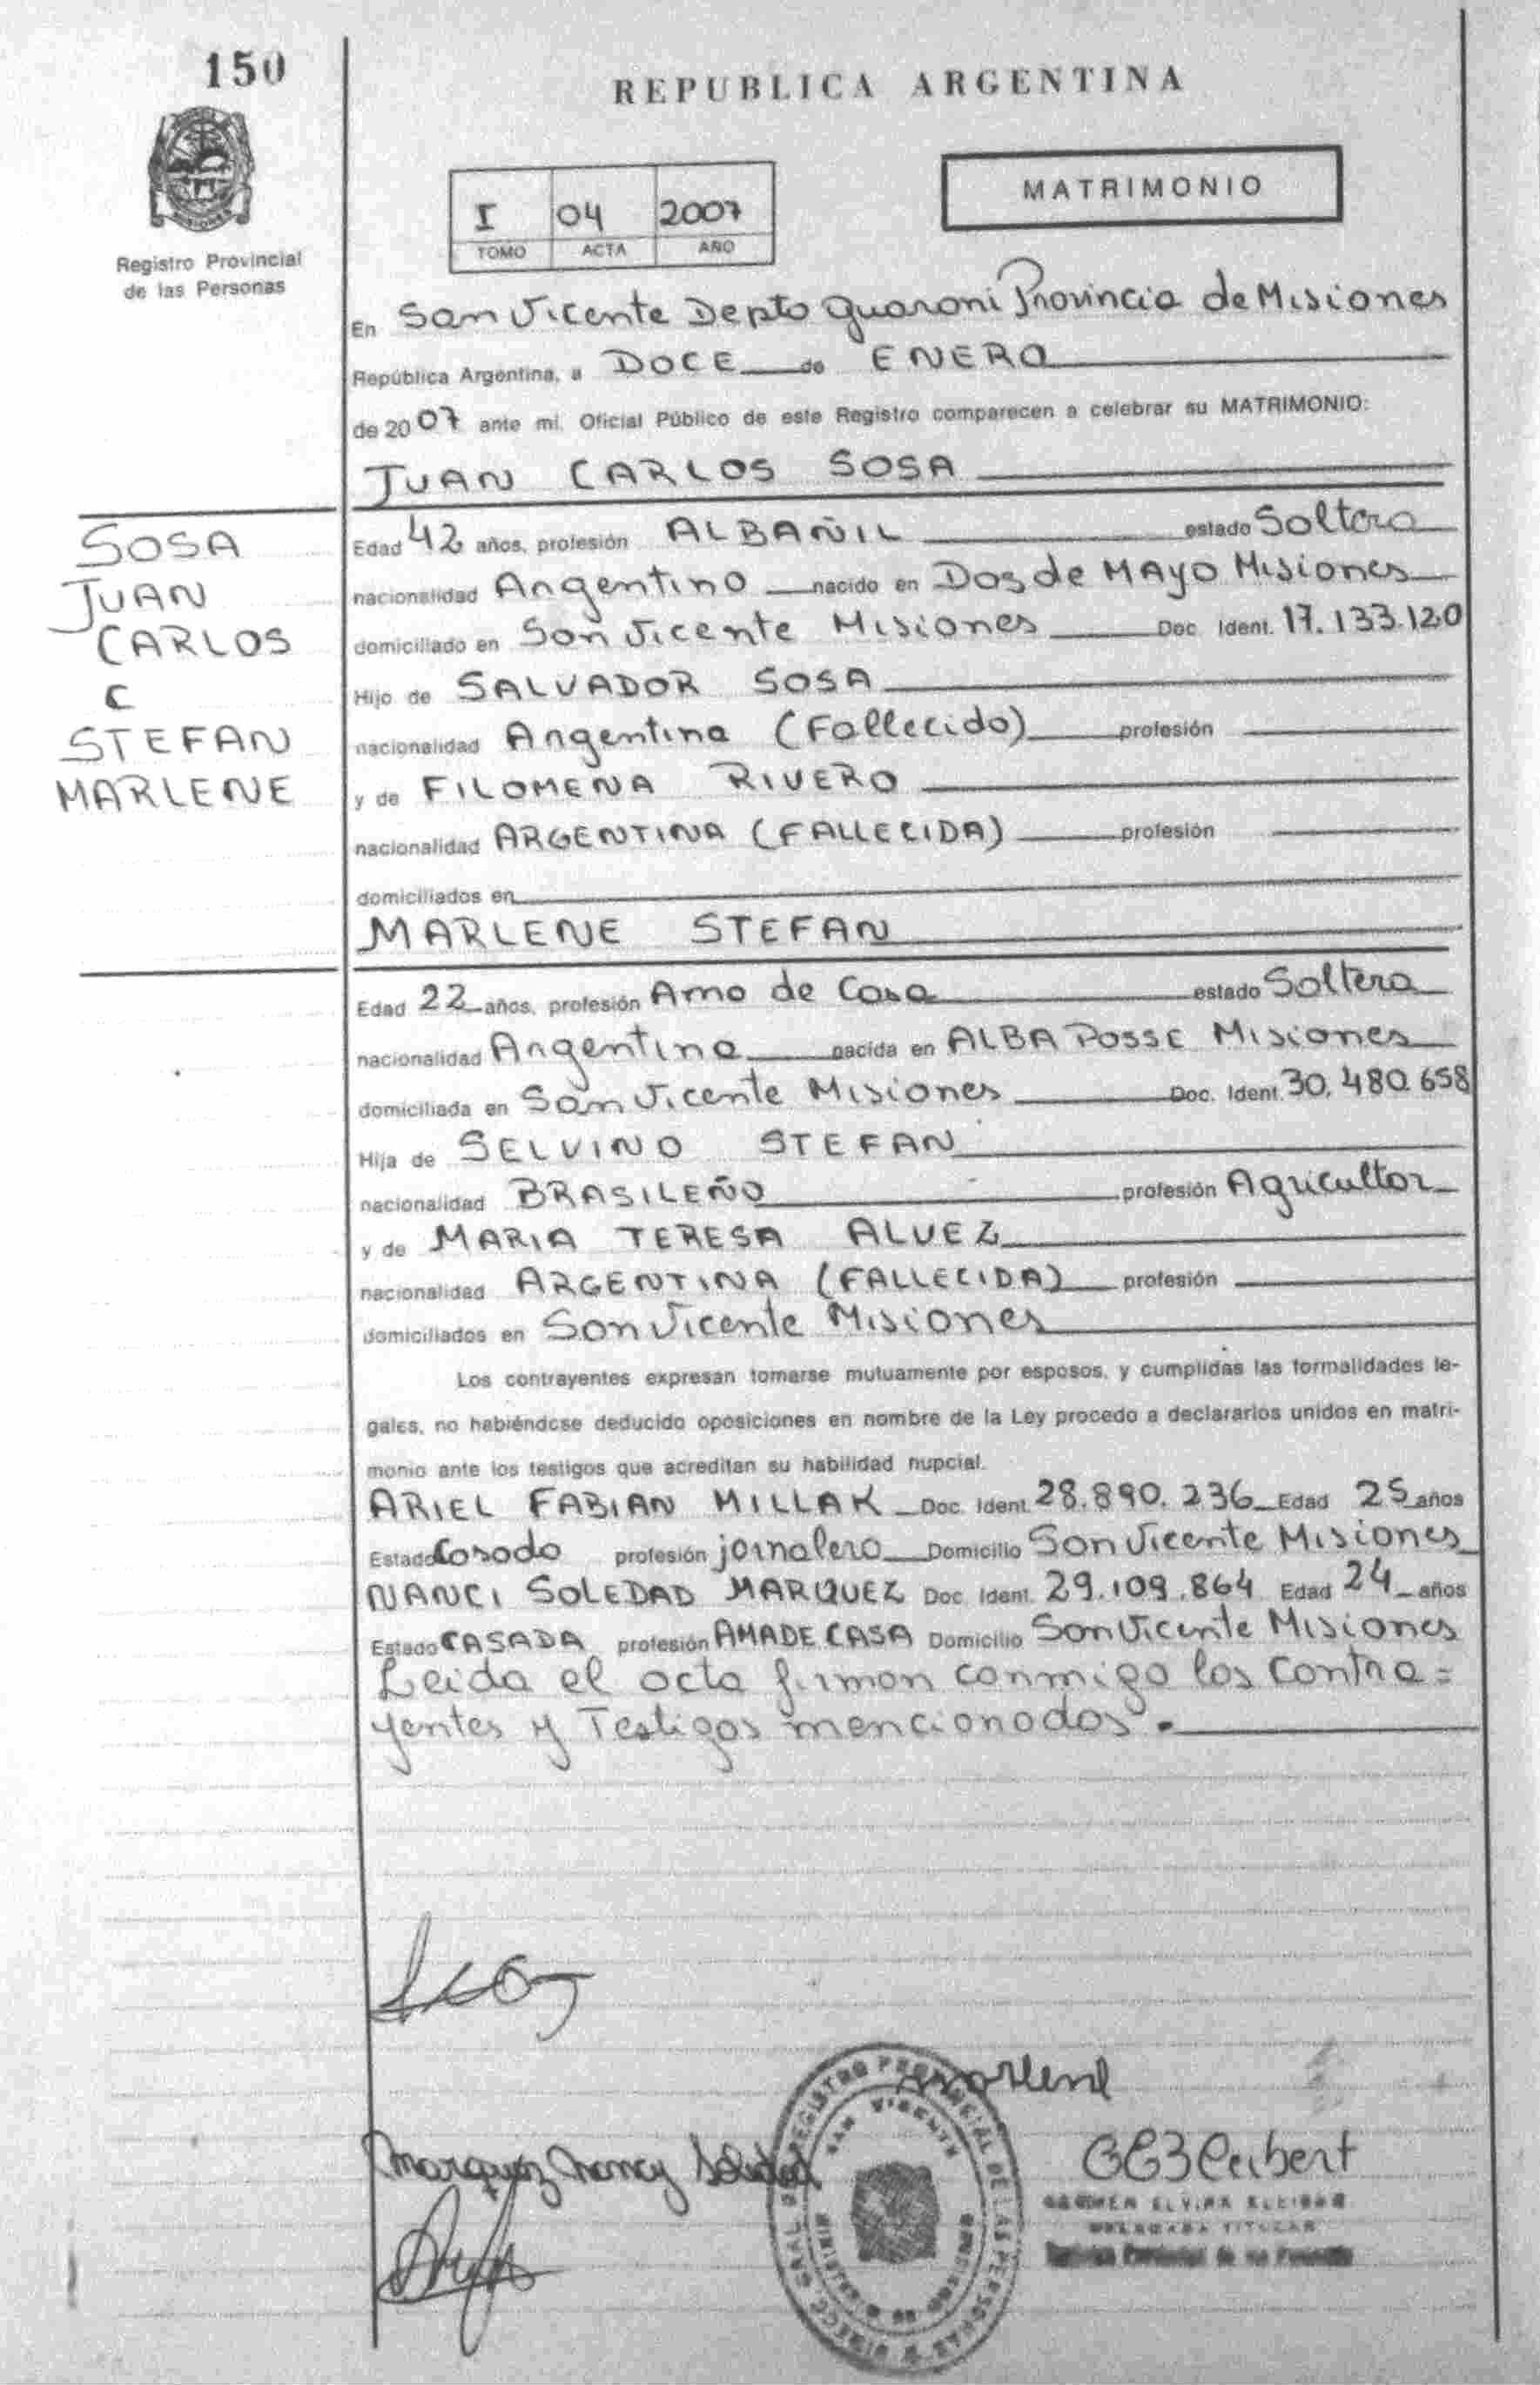 150
REPUBLICA ARGENTINA
MATRIMONIO
I 04 2007
TOMO ACTA AÑO
Registro Provincial
de las Personas
En San Vicente Depto Guaroni Provincia de Misiones
República Argentina, a DOCE de ENERO
de 2007 ante mi, Oficial Público de este Registro comparecen a celebrar su MATRIMONIO:
JUAN CARLOS SOSA
SOSA
JUAN
CARLOS
C
STEFAN
MARLENE
Edad 42 años, profesión ALBAÑIL estado Soltero
nacionalidad Argentino nacido en Dos de MAYO Misiones
domiciliado en San Vicente Misiones Doc. Ident. 17.133.120
Hijo de SALVADOR SOSA
nacionalidad Argentina (Fallecido) profesión
y de FILOMENA RIVERO
nacionalidad ARGENTINA (FALLECIDA) profesión
domiciliados en
MARLENE STEFAN
Edad 22 años, profesión Ama de Casa estado Soltera
nacionalidad Argentina nacida en ALBA POSSE Misiones
domiciliada en San Vicente Misiones Doc. Ident. 30.480.658
Hija de SELVINO STEFAN
nacionalidad BRASILEÑO profesión Agricultor
y de MARIA TERESA ALVEZ
nacionalidad ARGENTINA (FALLECIDA) profesión
domiciliados en San Vicente Misiones
Los contrayentes expresan tomarse mutuamente por esposos, y cumplidas las formalidades le-
gales, no habiéndose deducido oposiciones en nombre de la Ley procedo a declararlos unidos en matri-
monio ante los testigos que acreditan su habilidad nupcial.
ARIEL FABIAN MILLAK Doc. Ident. 28.890.236 Edad 25 años
Estado Casado profesión jornalero Domicilio San Vicente Misiones
NANCI SOLEDAD MARQUEZ Doc. Ident. 29.109.864 Edad 24 años
Estado CASADA profesión AMA DE CASA Domicilio San Vicente Misiones
Leida el acta firman conmigo los contra=
yentes y Testigos mencionados.
Marlene
Marquez Nancy Soledad
REGISTRO PROVINCIAL DE LAS PERSONAS
SAN VICENTE
CARMEN ELVIRA
DELEGADA TITULAR
Registro Provincial de las Personas